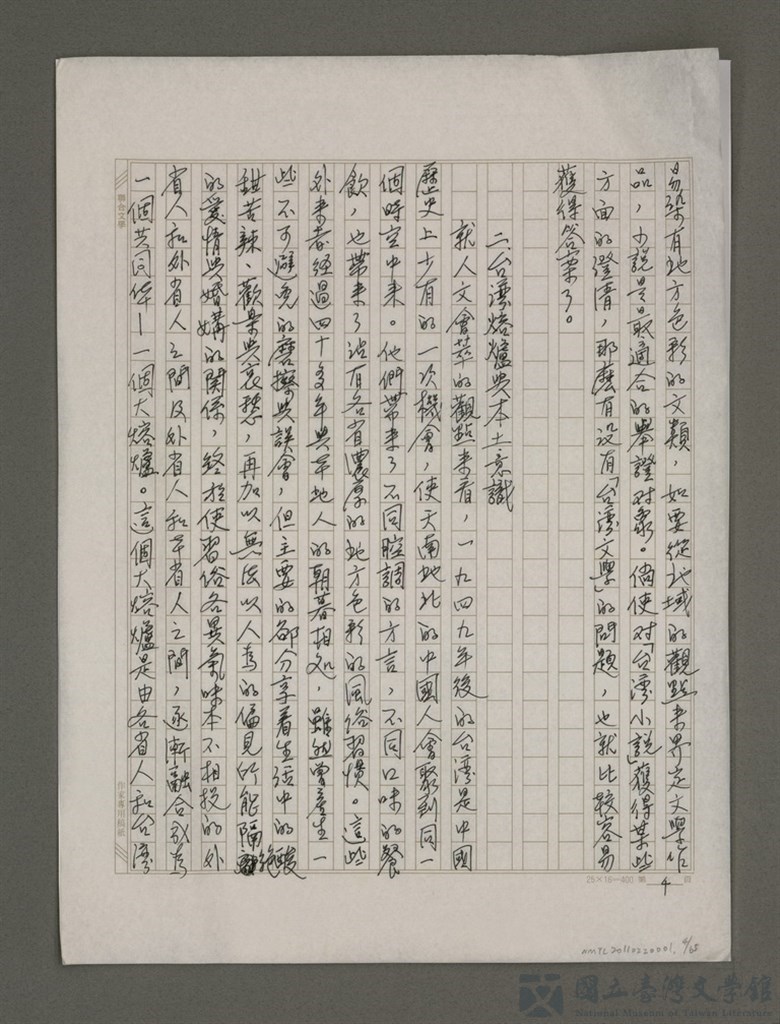 易染有地方色彩的文類，如要從地域的觀點來界定文學作
品，小說是最適合的舉證對象。倘使對「台灣小說」獲得某些
方面的澄清，那麼有沒有「台灣文學」的問題，也就比較容易
獲得答案了。
二、台灣熔爐與本土意識
就人文會萃的觀點來看，一九四九年後的台灣是中國
歷史上少有的一次機會，使天南地北的中國人會聚到同一
個時空中來。他們帶來了不同腔調的方言，不同口味的餐
飲，也帶來了沾有各省濃厚的地方色彩的風俗習慣。這些
外來者經過四十多年與本地人的朝暮相處，雖然曾產生一
些不可避免的磨擦與誤會，但主要的部分享着生活中的酸
甜苦辣、歡樂與哀愁，再加以無法以人為的偏見所能隔絕
的愛情與婚媾的關係，終於使習俗各異氣味本不相投的外
省人和外省人之間及外省人和本省人之間，逐漸融合成為
一個共同体——一個大熔爐。這個大熔爐是由各省人和台灣
聯合文學
作家專用稿紙
25×16=400 第 4 頁
NMTL20110220001. 4/65
國立臺灣文學館
National Museum of Taiwan Literature